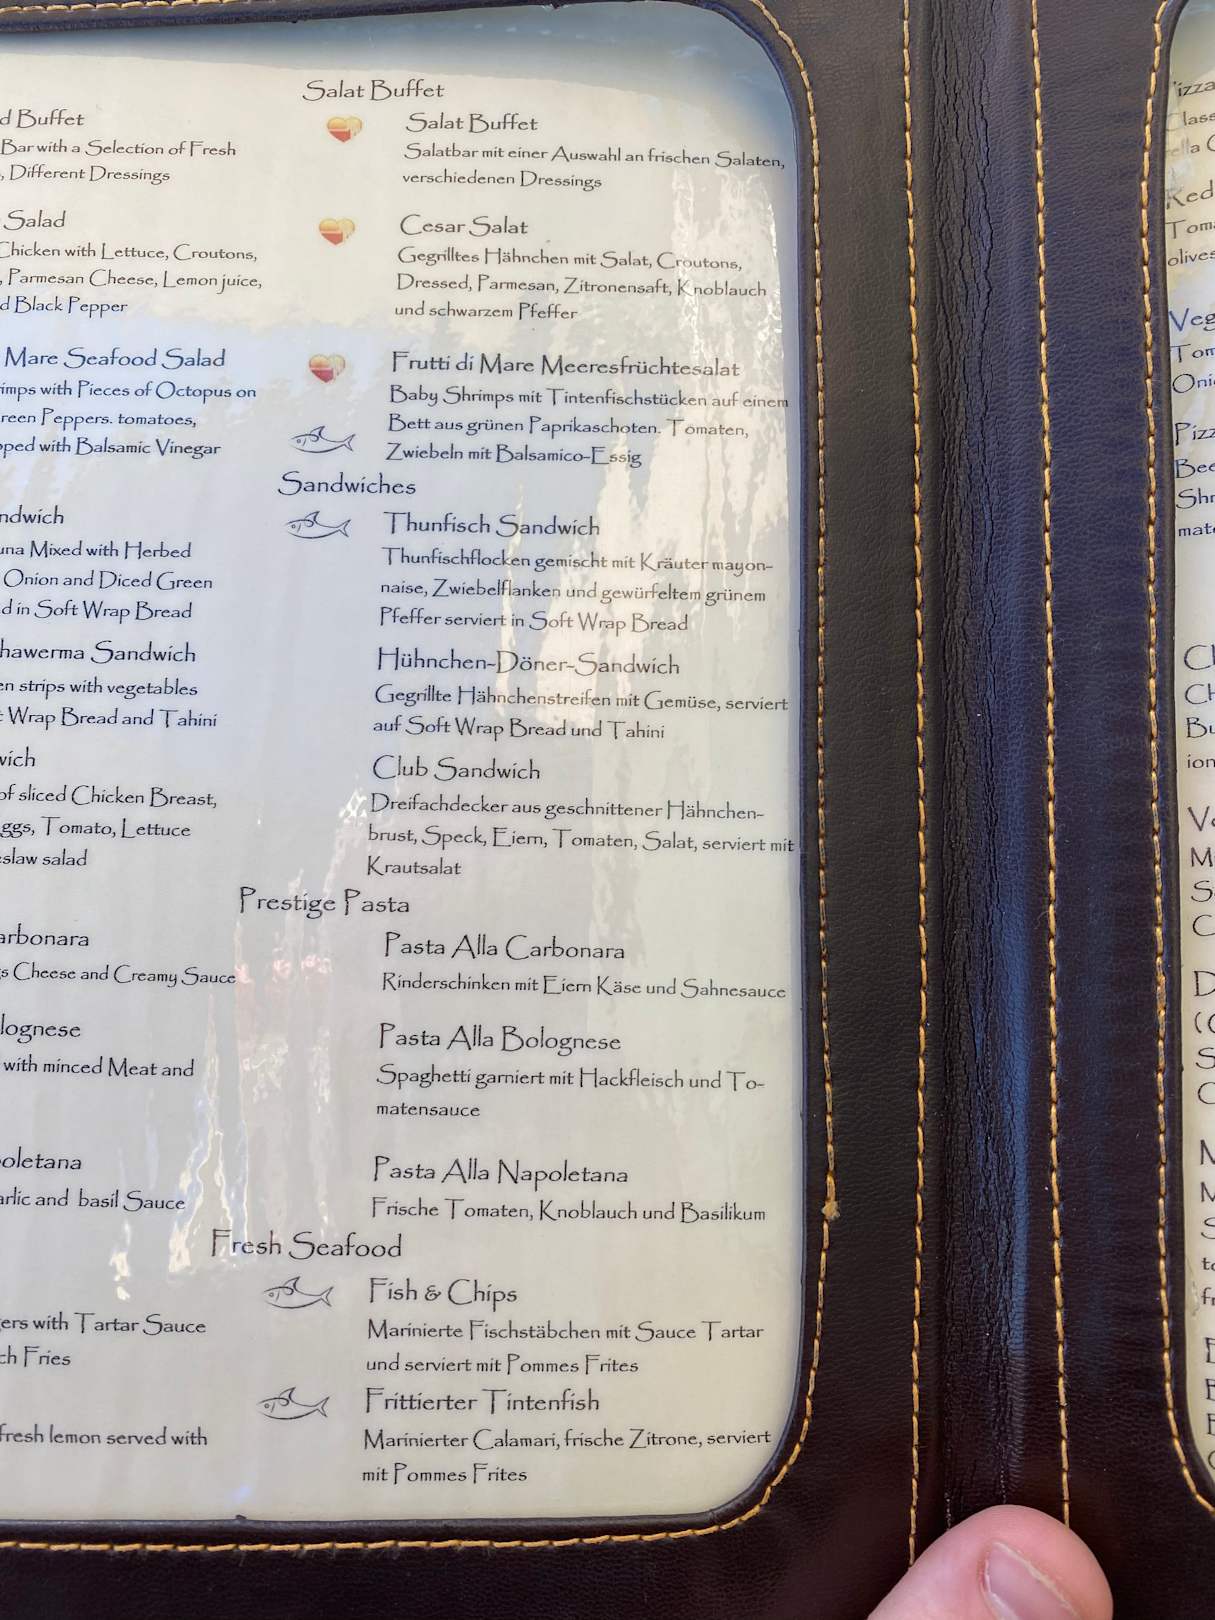 Salat Buffet
Buffet
Bar with a Selection of Fresh
, Different Dressings
Salad
Chicken with Lettuce, Croutons,
, Parmesan Cheese, Lemon juice,
Black Pepper
Mare Seafood Salad
with Pieces of Octopus on
Peppers. tomatoes,
with Balsamic Vinegar
Salat Buffet
Salatbar mit einer Auswahl an frischen Salaten,
verschiedenen Dressings
Cesar Salat
Gegrilltes Hähnchen mit Salat, Croutons,
Dressed, Parmesan, Zitronensaft, Knoblauch
und schwarzem Pfeffer
Frutti di Mare Meeresfrüchtesalat
Baby Shrimps mit Tintenfischstücken auf einem
Bett aus grünen Paprikaschoten. Tomaten,
Zwiebeln mit Balsamico-Essig
Sandwiches
ndwich
una Mixed with Herbed
Onion and Diced Green
d in Soft Wrap Bread
hawerma Sandwich
en strips with vegetables
Wrap Bread and Tahini
wich
of sliced Chicken Breast,
ggs, Tomato, Lettuce
slaw salad
Thunfisch Sandwich
Thunfischflocken gemischt mit Kräuter mayon-
naise, Zwiebelflanken und gewürfeltem grünem
Pfeffer serviert in Soft Wrap Bread
Hühnchen-Döner-Sandwich
Gegrillte Hähnchenstreifen mit Gemüse, serviert
auf Soft Wrap Bread und Tahini
Club Sandwich
Dreifachdecker aus geschnittener Hähnchen-
brust, Speck, Eiern, Tomaten, Salat, serviert mit
Krautsalat
Prestige Pasta
arbonara
s Cheese and Creamy Sauce
lognese
with minced Meat and
oletana
arlic and basil Sauce
Pasta Alla Carbonara
Rinderschinken mit Eiern Käse und Sahnesauce
Pasta Alla Bolognese
Spaghetti garniert mit Hackfleisch und To-
matensauce
Pasta Alla Napoletana
Frische Tomaten, Knoblauch und Basilikum
Fresh Seafood
gers with Tartar Sauce
ch Fries
fresh lemon served with
Fish & Chips
Marinierte Fischstäbchen mit Sauce Tartar
und serviert mit Pommes Frites
Frittierter Tintenfish
Marinierter Calamari, frische Zitrone, serviert
mit Pommes Frites